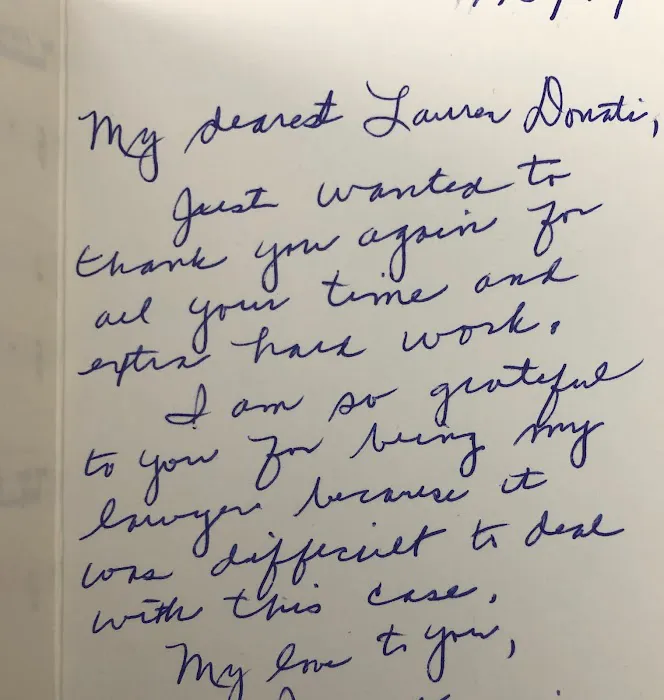 My dearest Lauren Donati,
Just wanted to
thank you again for
all your time and
extra hard work.
I am so grateful
to you for being my
lawyer because it
was difficult to deal
with this case.
My love to you,